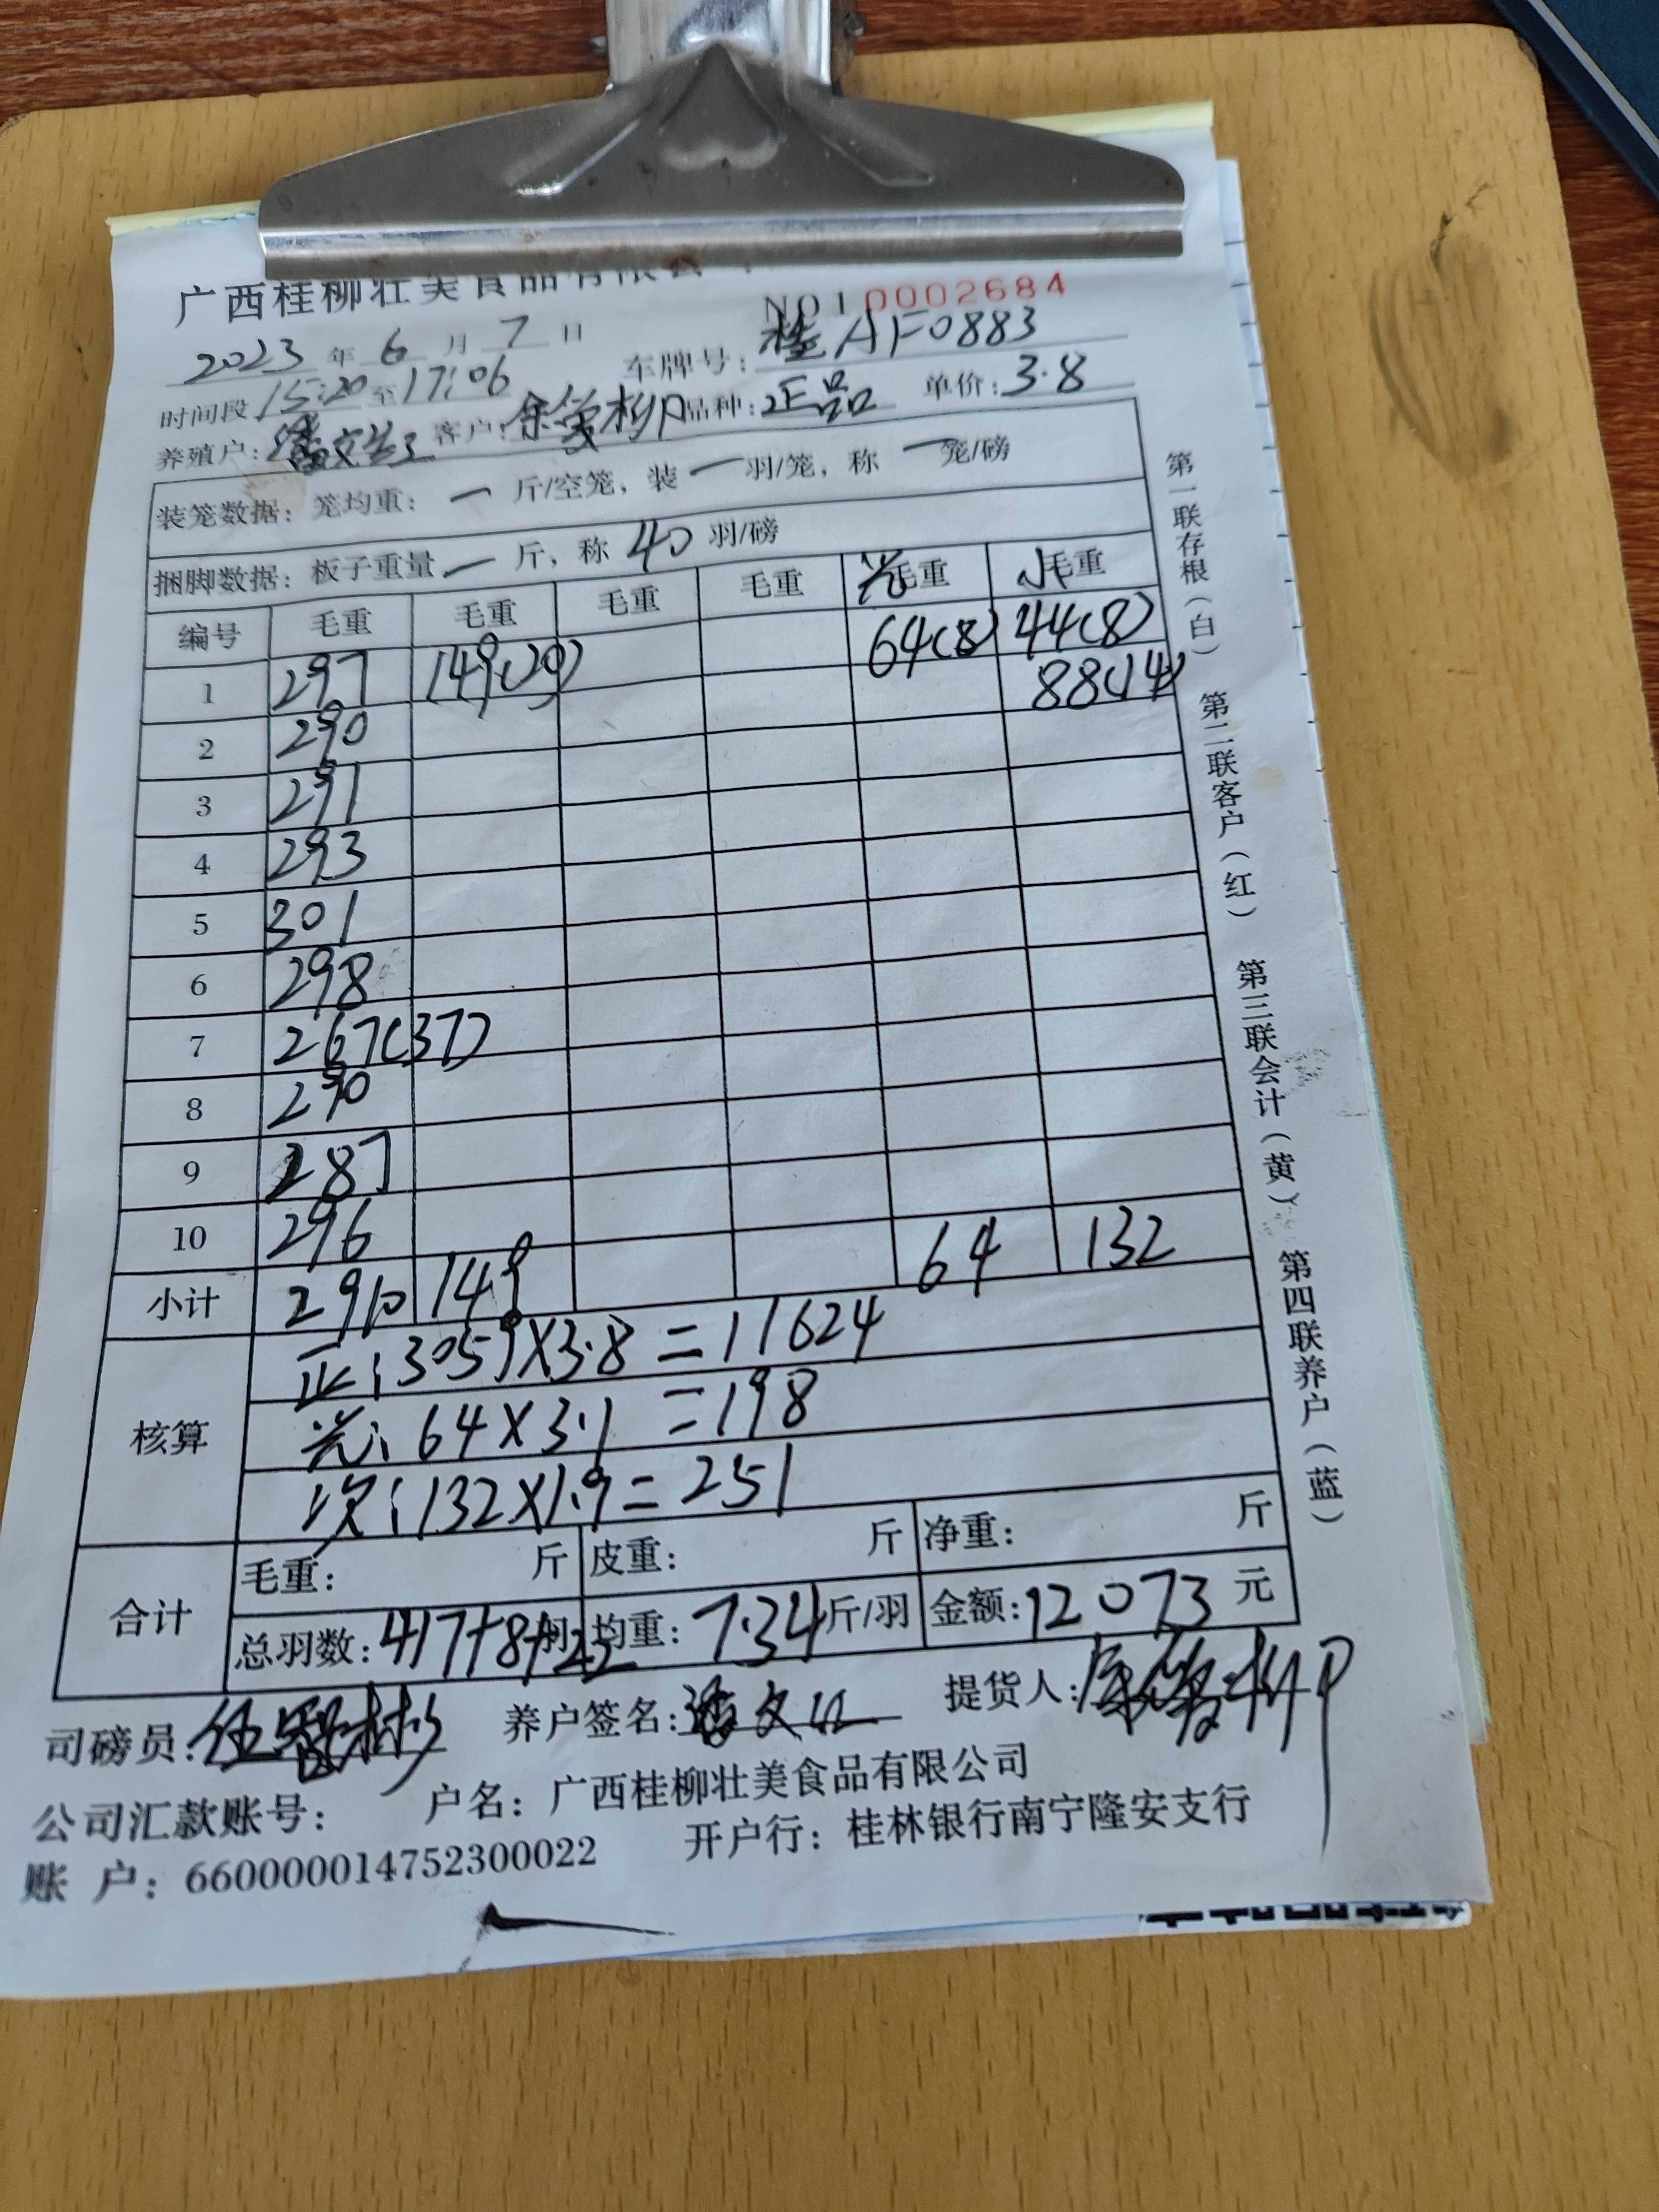 广西桂柳壮美食品有限公
NO10002684
2023 年 6 月 7 日 车牌号: 桂AF0883
时间段 15:20 至 17:06
养殖户: 潘文 客户: 品种: 正品 单价: 3.8
装笼数据: 笼均重: 一 斤/空笼, 装 一 羽/笼, 称 一 笼/磅
捆脚数据: 板子重量 一 斤, 称 40 羽/磅
编号 毛重 毛重 毛重 毛重 光毛重 小毛重
1 297 149(20) 64(8) 44(8)
88(14)
2 290
3 291
4 293
5 301
6 298
7 267(37)
8 290
9 287
10 296
小计 2910 149 64 132
核算 正: 3059×3.8=11624
光: 64×3.1=198
次: 132×1.9=251
合计 毛重: 斤 皮重: 斤 净重: 斤
总羽数: 417+8+22 羽 均重: 7.34 斤/羽 金额: 12073 元
司磅员: 养户签名: 潘文 提货人:
公司汇款账号: 户名: 广西桂柳壮美食品有限公司
账 户: 660000014752300022 开户行: 桂林银行南宁隆安支行
第一联存根(白) 第二联客户(红) 第三联会计(黄) 第四联养户(蓝)